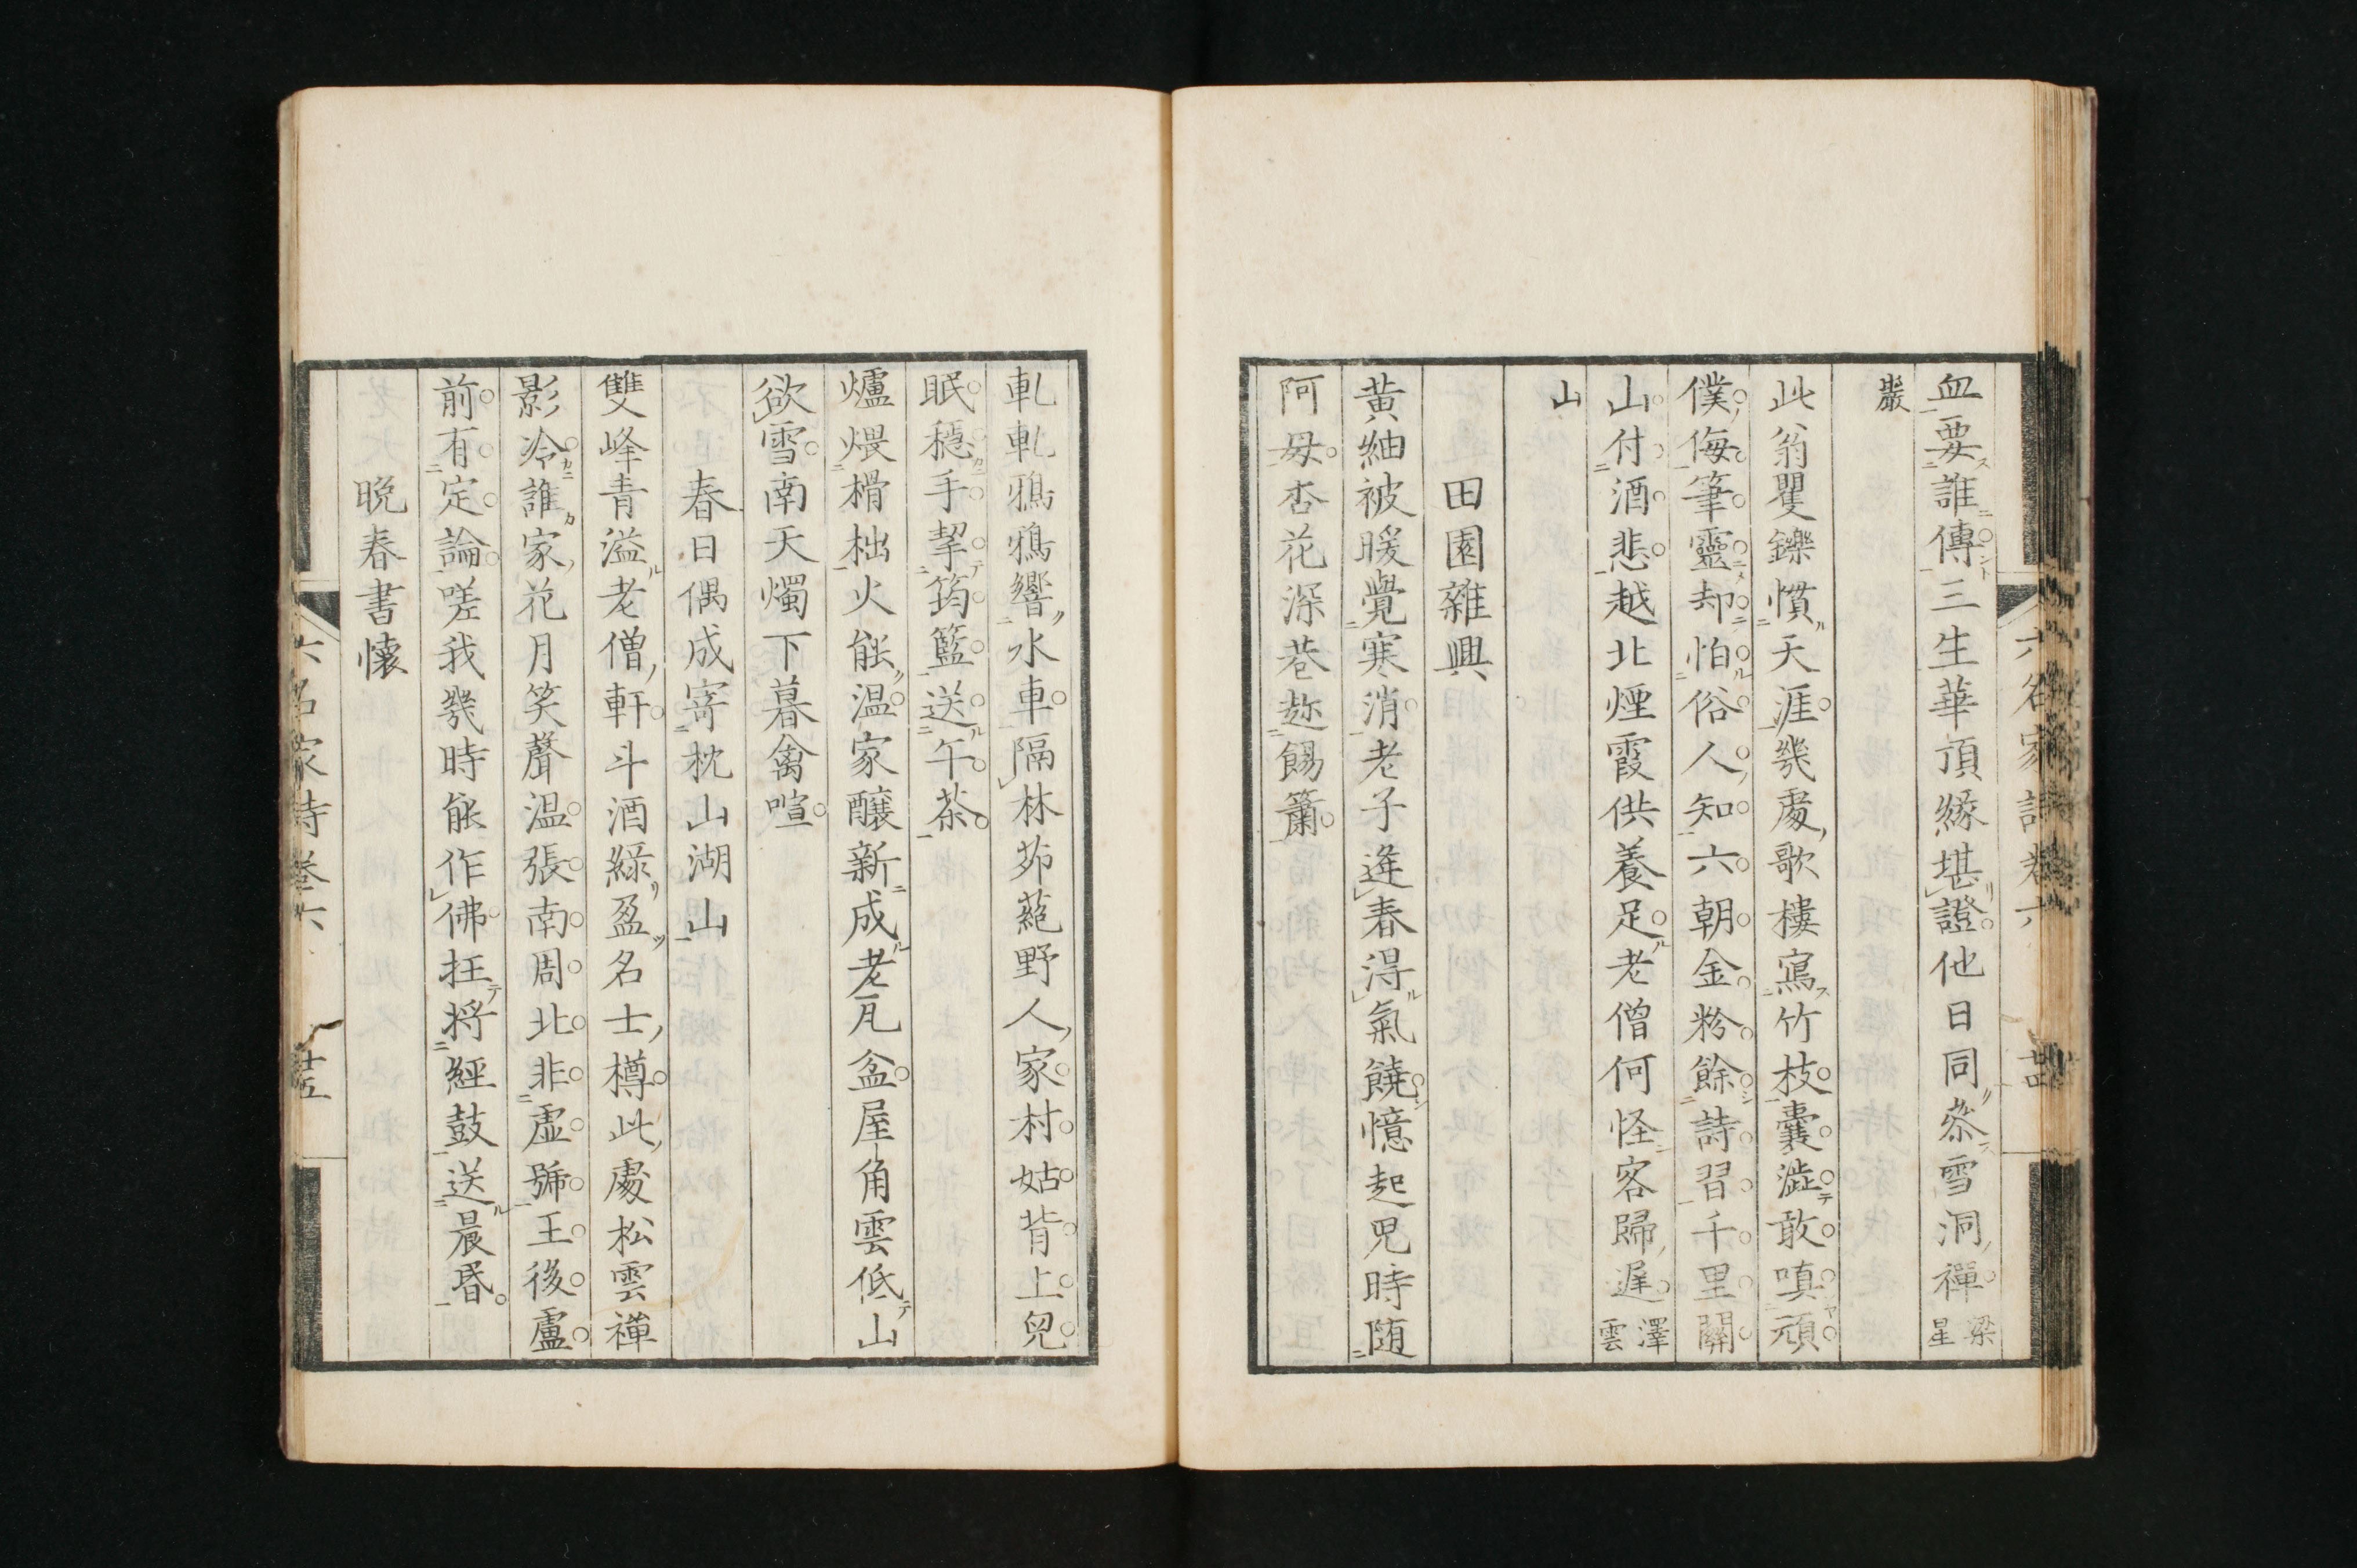 血要誰傳三生華頂緣堪證他日同叅雪洞禪梁星
巖
此翁矍鑠慣天涯幾處歌樓寫竹枝囊澁敢嗔頑
僕侮筆靈却怕俗人知六朝金粉餘詩習千里關
山付酒悲越北煙霞供養足老僧何怪客歸遲澤雲
山
田園雜興
黃紬被暖覺寒消老子逢春得氣饒憶起兒時随
阿母杏花深巷趂餳簫
軋軋鴉鴉響水車隔林茆蕝野人家村姑背上兒
眠穩手挈筠籃送午茶
爐煨榾柮火能温家醸新成老瓦盆屋角雲低山
欲雪南天燭下暮禽喧
春日偶成寄枕山湖山
雙峰青溢老僧軒斗酒綠盈名士樽此處松雲禅
影冷誰家花月笑聲温張南周北非虛號王後盧
前有定論嗟我幾時能作佛抂將經鼓送晨昏
晚春書懷
六名家詩卷六
廿五